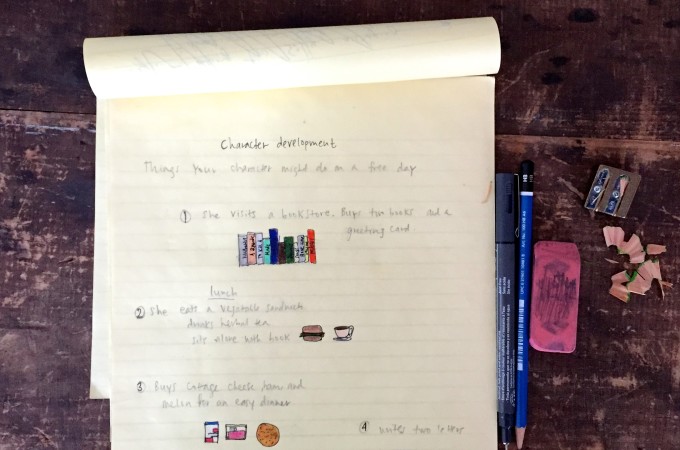 Character development
Things your character might do on a free day
① She visits a bookstore. Buys two books and a
greeting card
lunch
② She eats a vegetable sandwich
drinks herbal tea
sits alone with book
③ Buys cottage cheese ham and
melon for an easy dinner
④ writes two letters